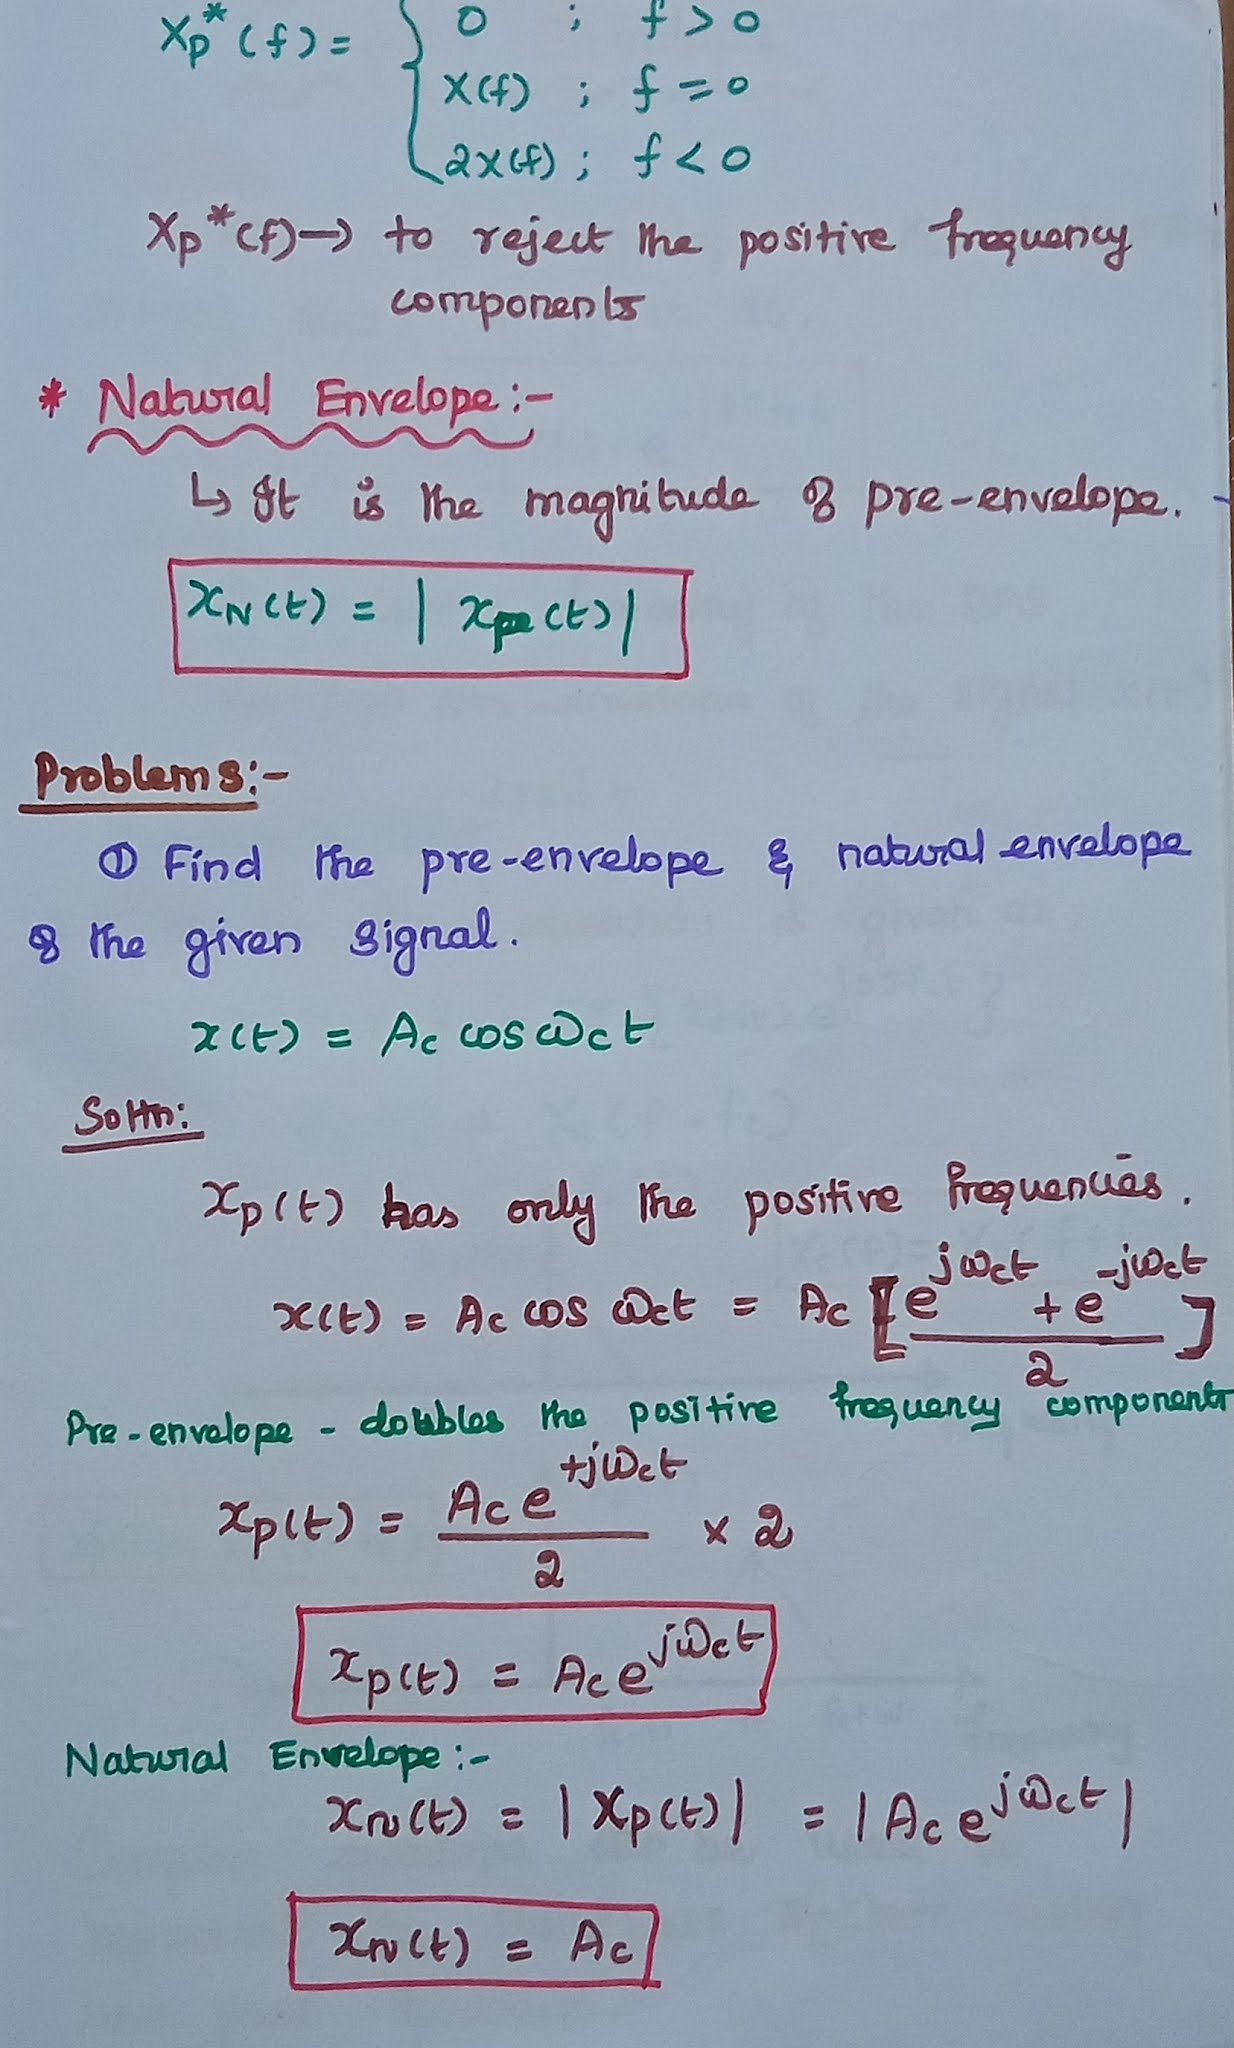 Xp*(f) = { 0 ; f > 0
X(f) ; f = 0
2X(f) ; f < 0
Xp*(f) → to reject the positive frequency
components
* Natural Envelope :-
↳ It is the magnitude of pre-envelope.
xN(t) = | xp(t) |
Problems:-
① Find the pre-envelope & natural envelope
of the given signal.
x(t) = Ac cos ωct
Soltn:
xp(t) has only the positive frequencies.
x(t) = Ac cos ωct = Ac [ (e^jωct + e^-jωct) / 2 ]
Pre-envelope - doubles the positive frequency components
xp(t) = (Ac e^+jωct) / 2 × 2
xp(t) = Ac e^jωct
Natural Envelope :-
xN(t) = | Xp(t) | = | Ac e^jωct |
xN(t) = Ac